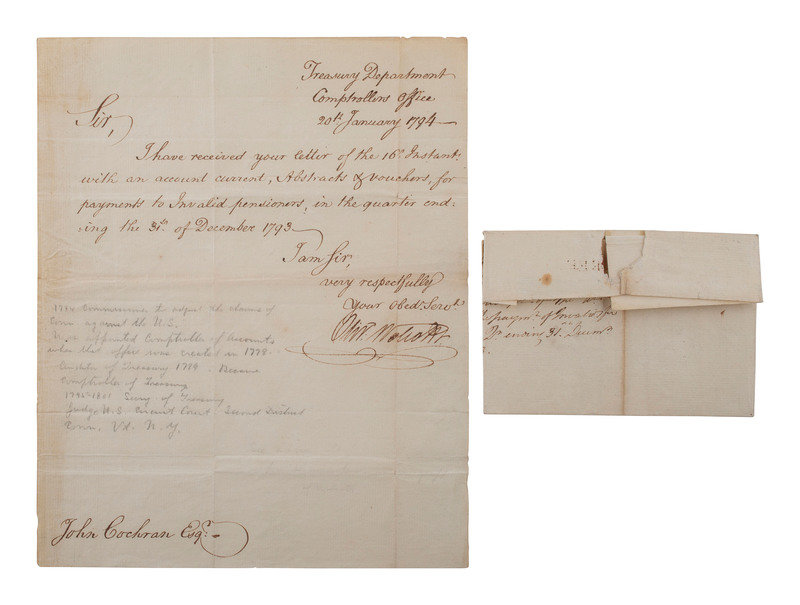 Treasury Department
Comptrollers Office
20th January 1794
Sir,
I have received your letter of the 16th Instant,
with an account current, Abstracts & vouchers, for
payments to Invalid pensioners, in the quarter end=
=ing the 31st of December 1793
I am Sir,
very respectfully
Your Obedt Servt
Olivr Wolcott
1784 Commissioner to adjust the claims of
Conn against the U.S.
appointed Comptroller of Accounts
when that office was created in 1778
of Treasury 1789. Became
Comptroller of Treasury
1795-1801 Secry of Treasury
Judge U.S. Circuit Court - Second District
Conn, Vt. N.Y.
John Cochran Esqr.
FREE
of the
paymt. of Invalid
31. Decemr